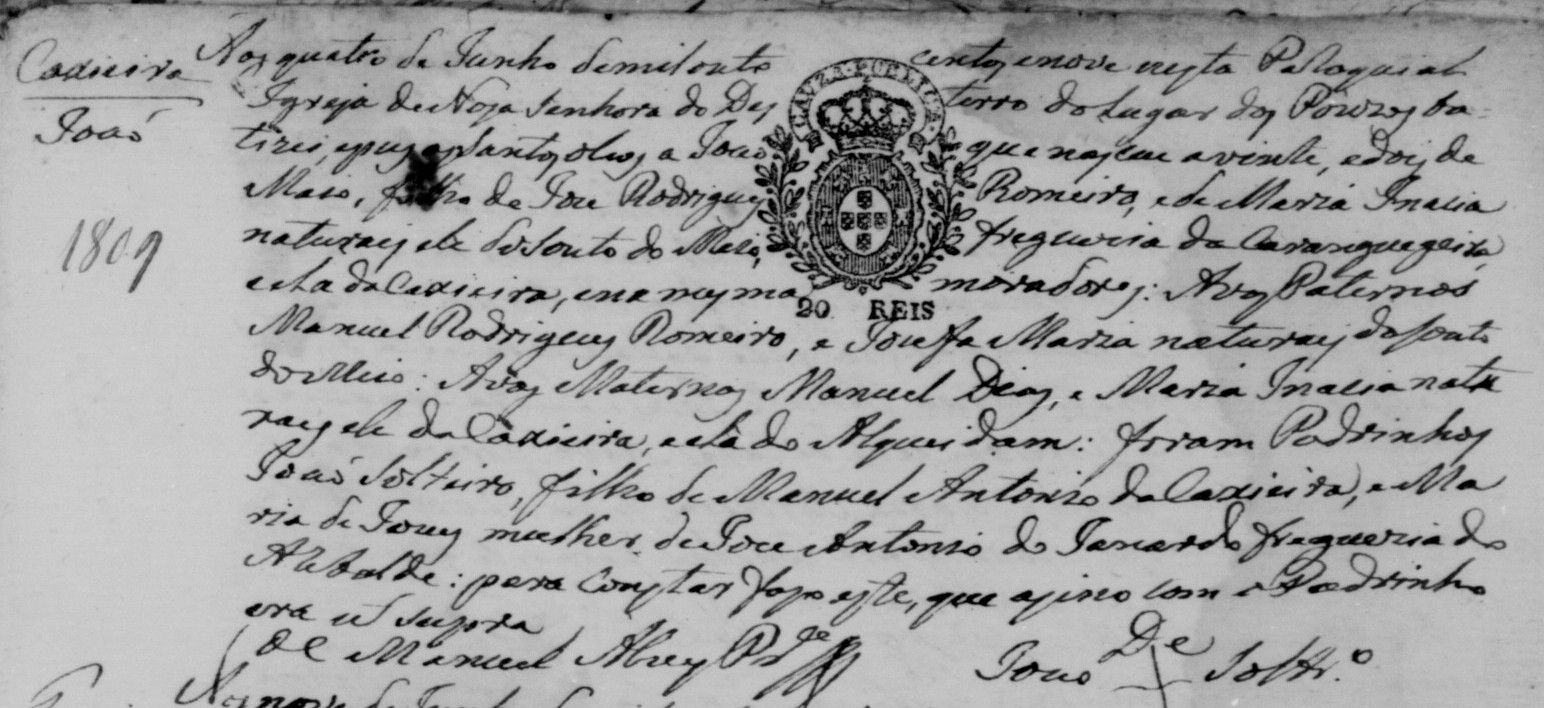 Caxieira
João
1809
Aos quatro de Junho de mil outo centos e nove nesta Paroquial
Igreja de Nosa Senhora do Desterro do lugar dos Pouzos ba
tizei, e pus os Santos oleos a João que nasceu a vinte, e dois de
Maio, filho de Joze Rodrigues Romeiro, e de Maria Inacia
naturais ele do Souto do Meio, freguezia da Carangueigeira,
e ela da Caxieira, e na mesma moradores: Avos Paternos
Manuel Rodrigues Romeiro, e Joze fa Maria naturais do Souto
do Meio: Avos Maternos Manuel Dias, e Maria Inacia natu
rais ele da Caxieira, e ela do Alqueidam: foram Padrinhos
João Solteiro, filho de Manuel Antonio da Caxieira, e Ma
ria de Jezus mulher de Joze Antonio do freguezia do
Arabalde: para constar faso este, que asino com o Padrinho
era ut supra
Manuel Alves
João De Soltro
CAUZA PUBLICA
20 REIS
Aos nove de Junho de mil